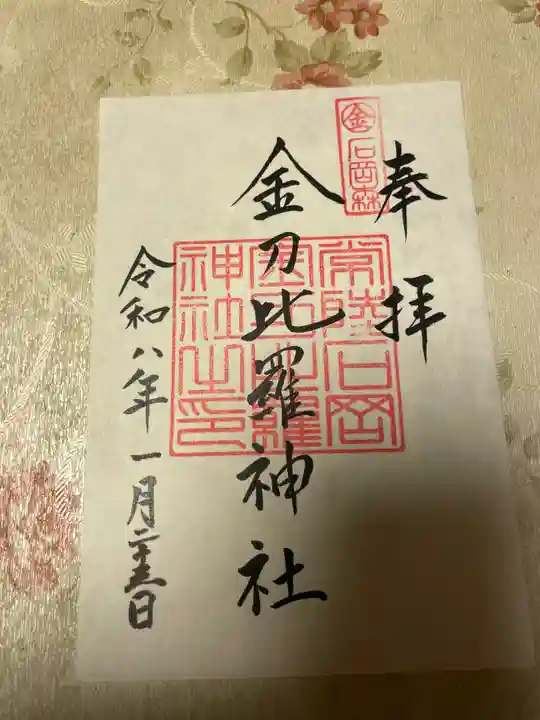 奉拝
金
石岡森
金刀比羅神社
常陸石岡
金刀比羅
神社之印
令和八年一月二十五日